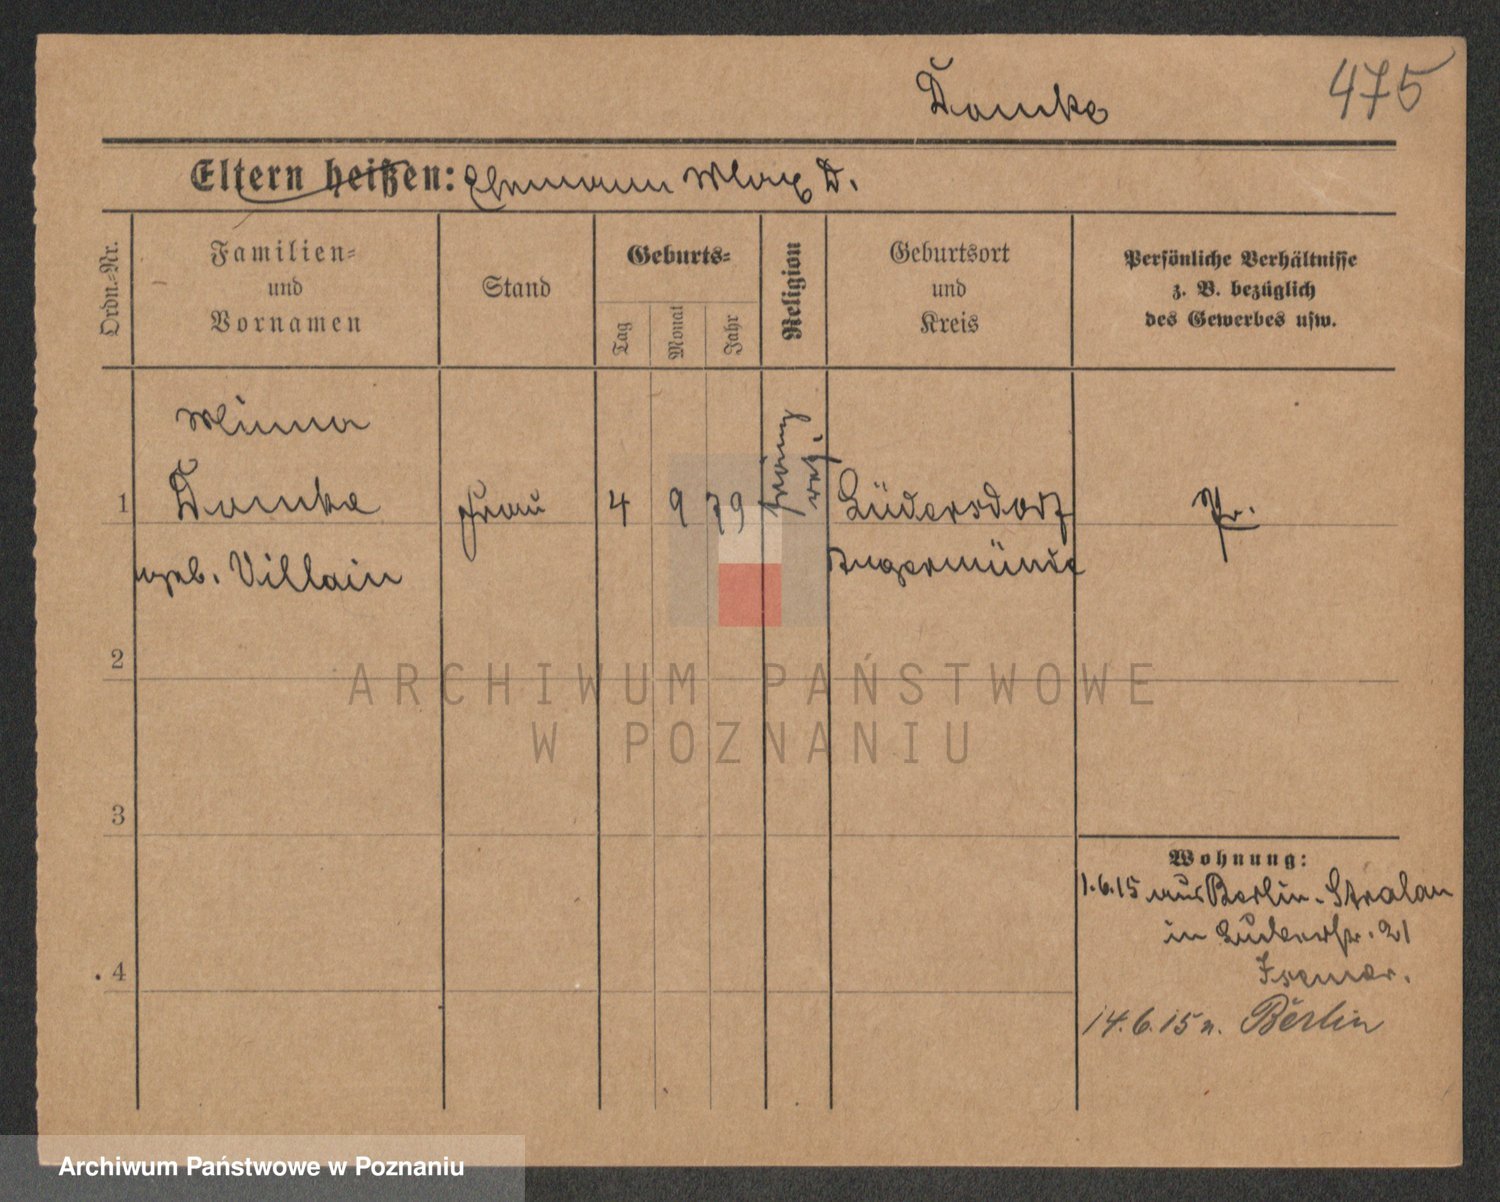 Domke
475
Eltern heißen: Ehemann Max D.
Ordn.-Nr.
Familien-
und
Vornamen
Stand
Geburts-
Tag
Monat
Jahr
Religion
Geburtsort
und
Kreis
Persönliche Verhältnisse
z. B. bezüglich
des Gewerbes usw.
Minna
1 Domke Frau 4 9 79 franz. ref. Lüdersdorf Pr.
geb. Villain Angermünde
2
3
4
Wohnung:
1.6.15 aus Berlin-Stralau
in 21
14.6.15 n. Berlin
ARCHIWUM PAŃSTWOWE
W POZNANIU
Archiwum Państwowe w Poznaniu